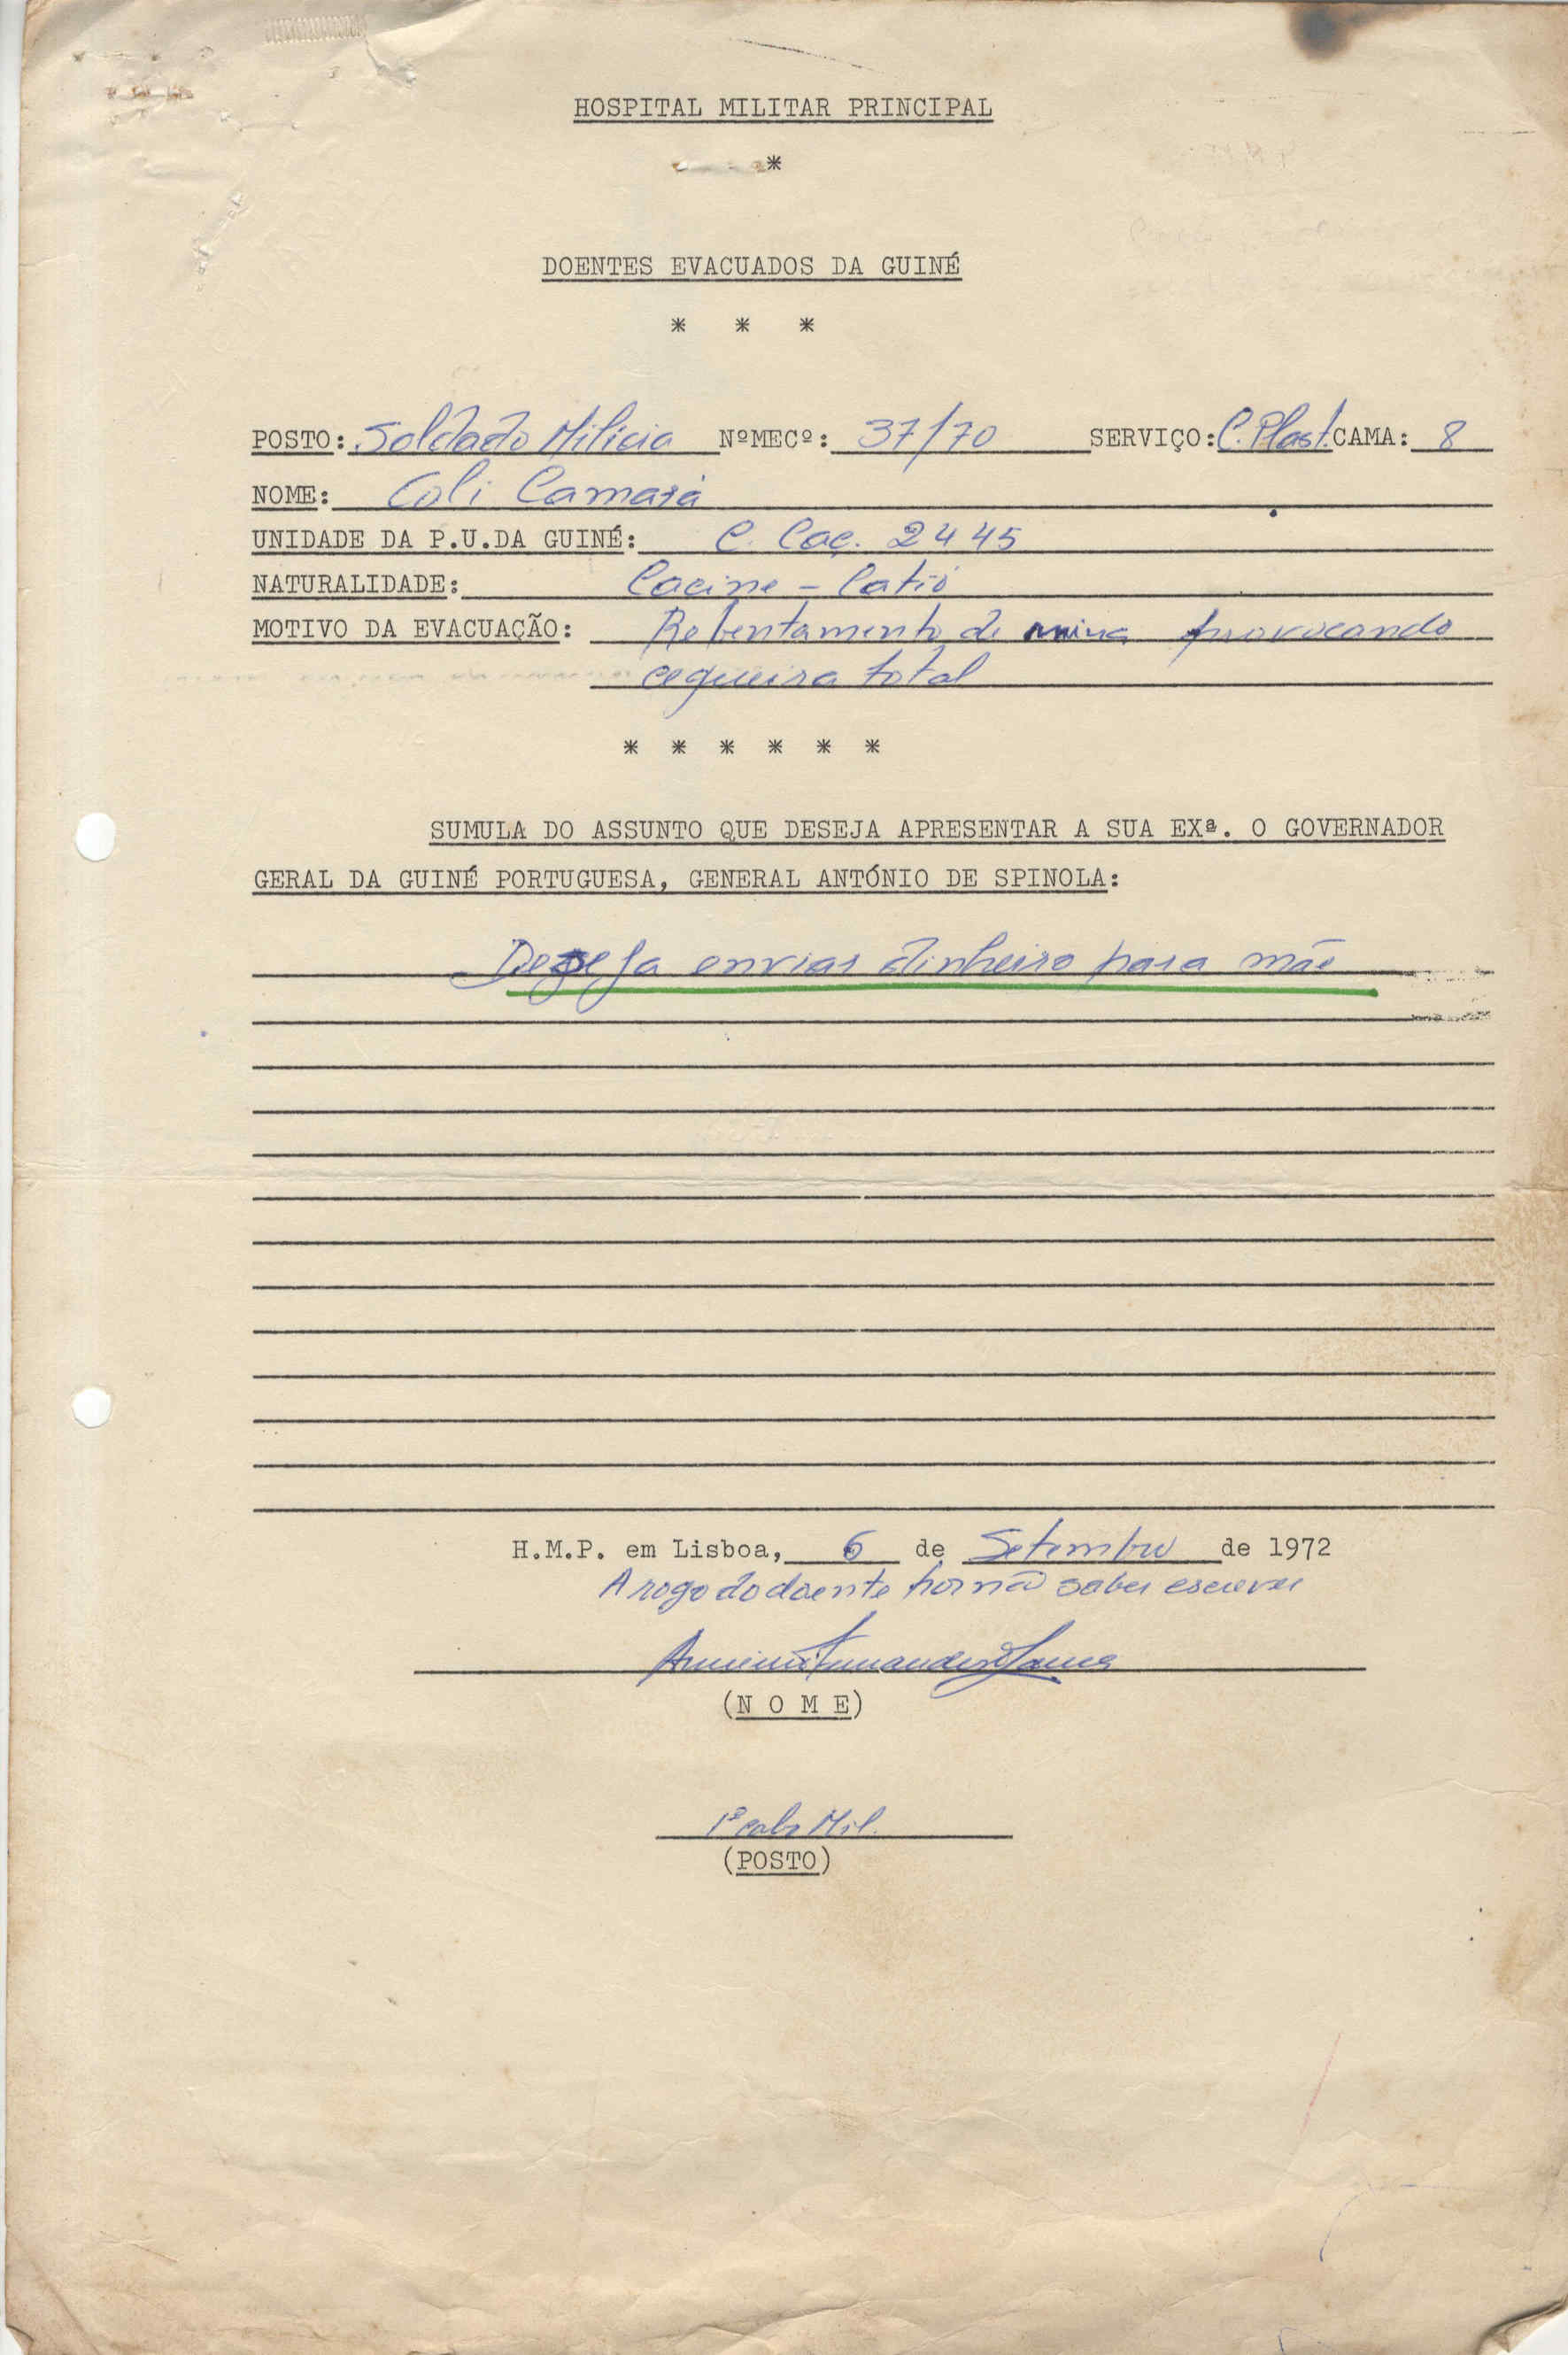 HOSPITAL MILITAR PRINCIPAL
*
DOENTES EVACUADOS DA GUINÉ
* * *
POSTO: Soldado Milicia NºMECº: 37/70 SERVIÇO: C. Plast. CAMA: 8
NOME: Coli Camará
UNIDADE DA P.U.DA GUINÉ: C. Caç. 2445
NATURALIDADE: Cacine - Catió
MOTIVO DA EVACUAÇÃO: Rebentamento de mina provocando
cegueira total
* * * * * *
SUMULA DO ASSUNTO QUE DESEJA APRESENTAR A SUA EXª. O GOVERNADOR
GERAL DA GUINÉ PORTUGUESA, GENERAL ANTÓNIO DE SPINOLA:
Deseja enviar dinheiro para mãe
H.M.P. em Lisboa, 6 de Setembro de 1972
A rogo do doente por não saber escrever
(N O M E)
1º cabo Mil.
(POSTO)